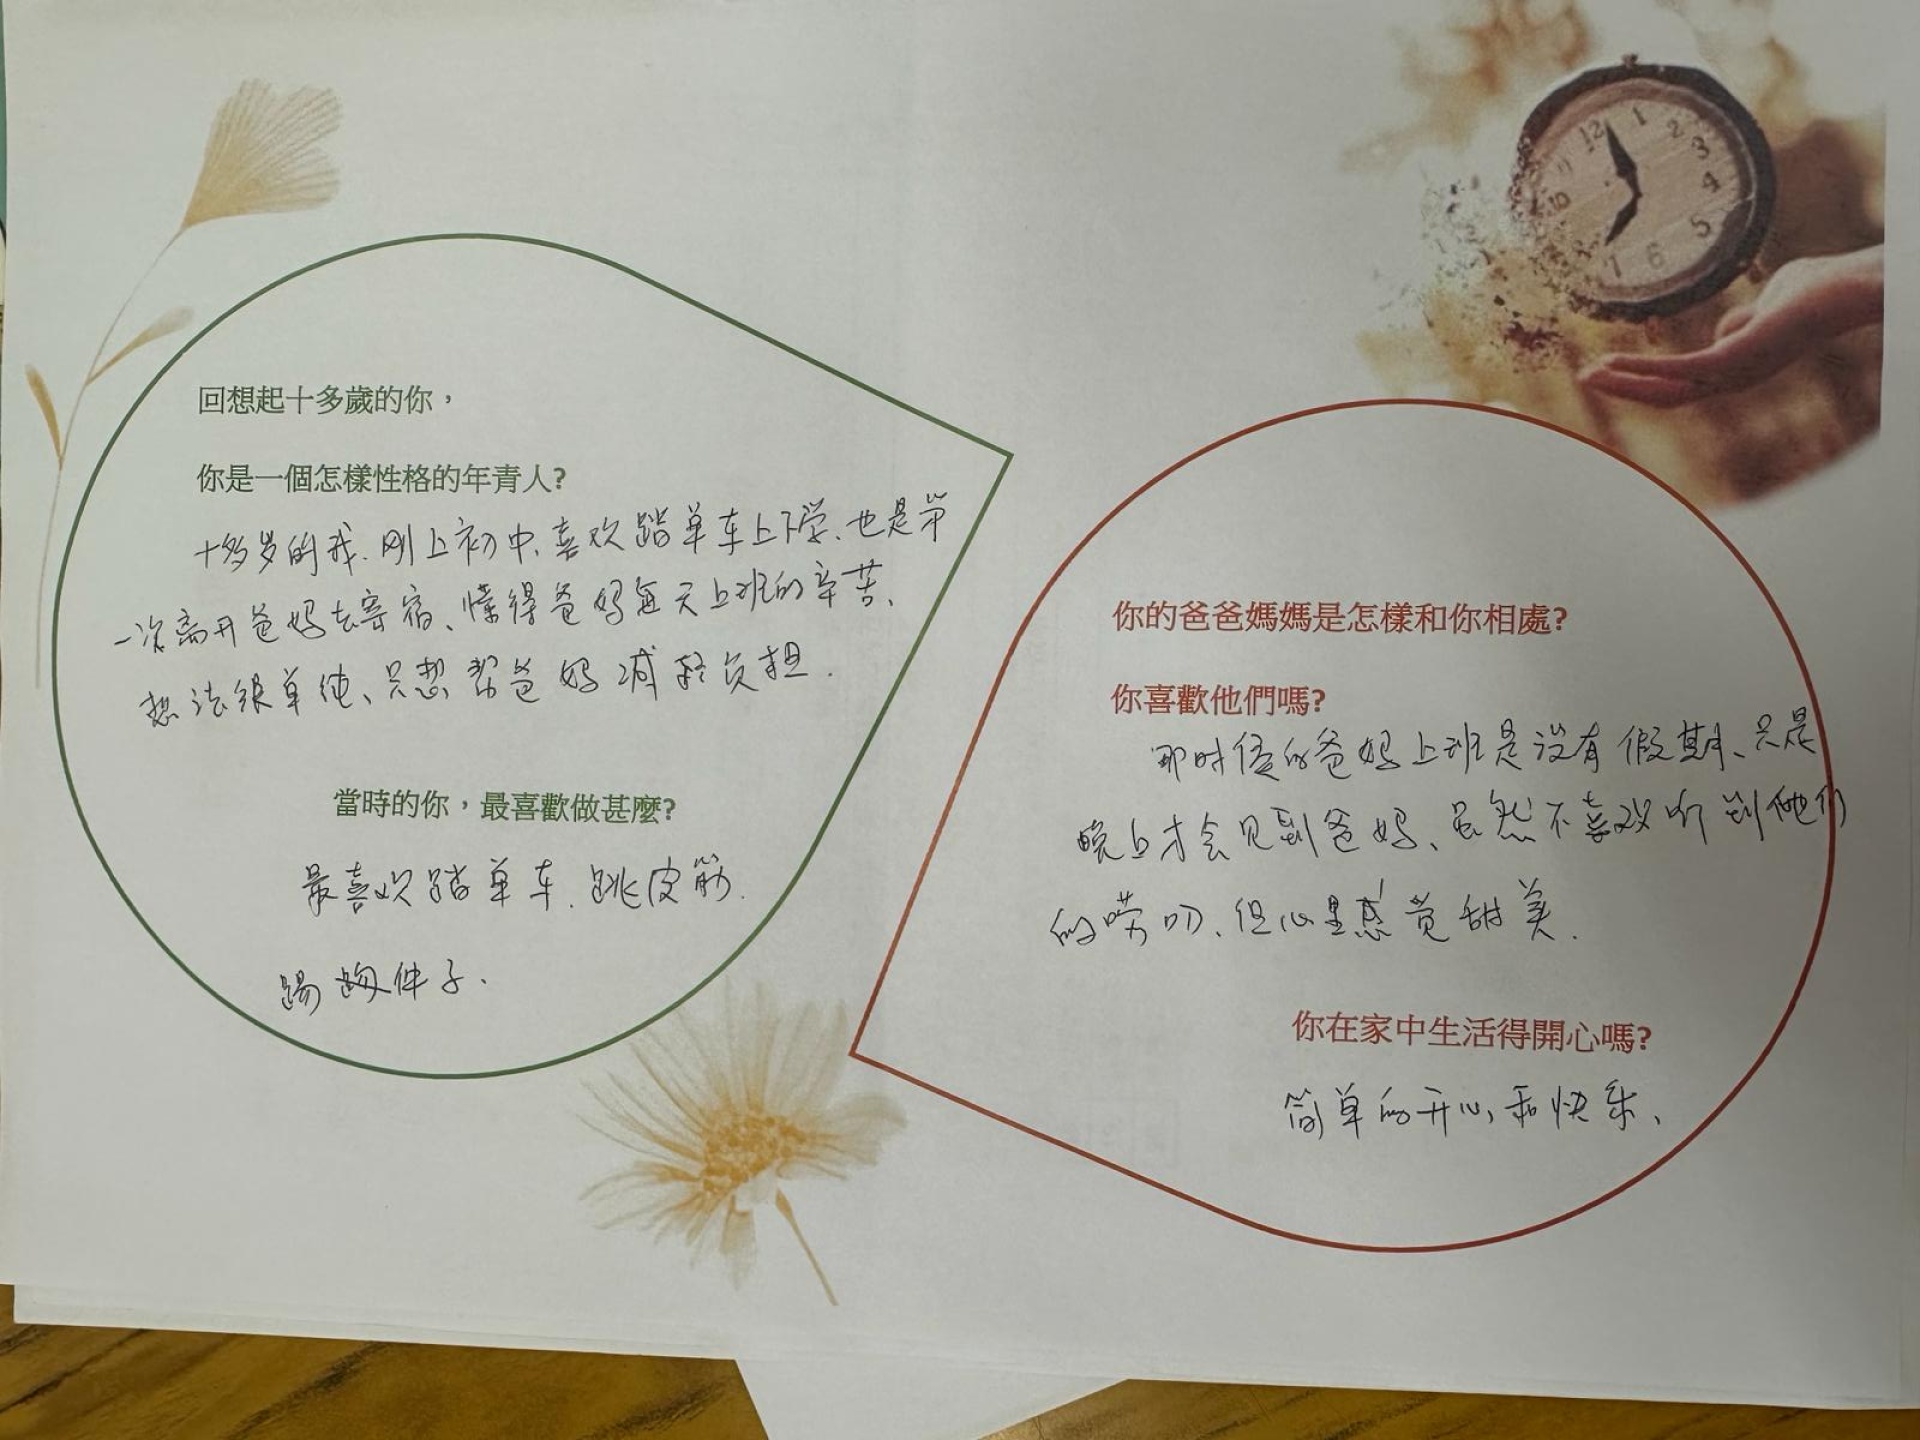 回想起十多歲的你，
你是一個怎樣性格的年青人?
十多岁的我.刚上初中、喜欢踏单车上下学、也是第
一次离开爸妈去寄宿、懂得爸妈每天上班的辛苦、
想法很单纯、只想帮爸妈减轻负担.
當時的你，最喜歡做甚麼?
最喜欢踏单车.跳皮筋.
踢 子.
你的爸爸媽媽是怎樣和你相處?
你喜歡他們嗎?
那时侯的爸妈上班是没有假期、只是
晚上才会见到爸妈、虽然不喜欢听到他们
的唠叨、但心里感觉甜美.
你在家中生活得開心嗎?
简单的开心和快乐、
12 1 2 3 4 5 6
10